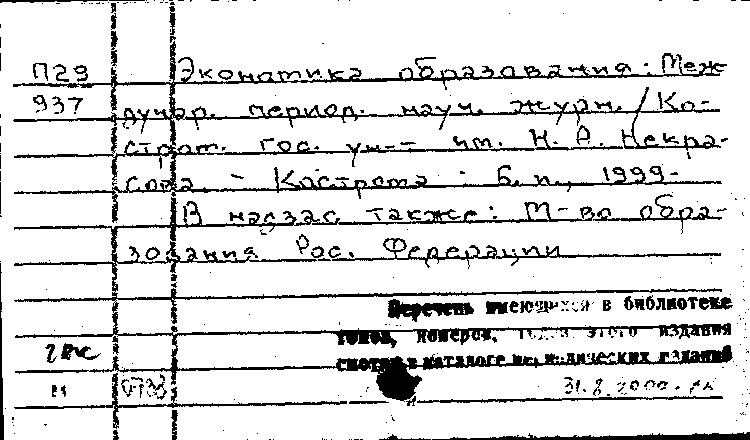 П29 Экономика образования: Меж-
937 дунар. период. науч. журн. / Ко-
стром. гос. ун-т им. Н. А. Некра-
сова. - Кострома: Б. и., 1999-
В надзаг. также: М-во обра-
зования Рос. Федерации
Перечень имеющихся в библиотеке
томов, номеров, этого издания
смотри в каталоге периодических изданий
2 вис
0733 31.8.2000.